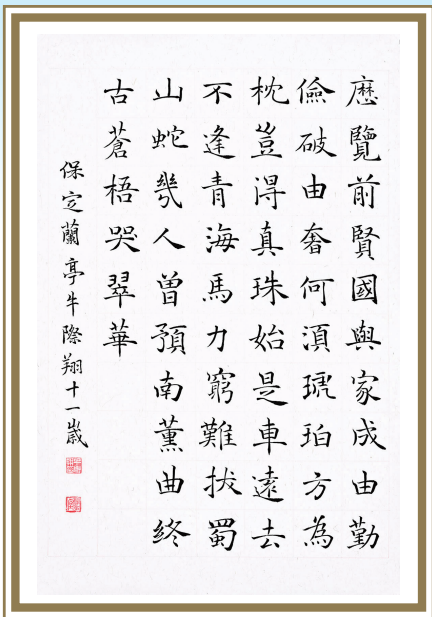 歷覽前賢國與家成由勤
儉破由奢何須琥珀方為
枕豈得真珠始是車遠去
不逢青海馬力窮難拔蜀
山蛇幾人曾預南薰曲終
古蒼梧哭翠華
保定蘭亭牛際翔十一歲